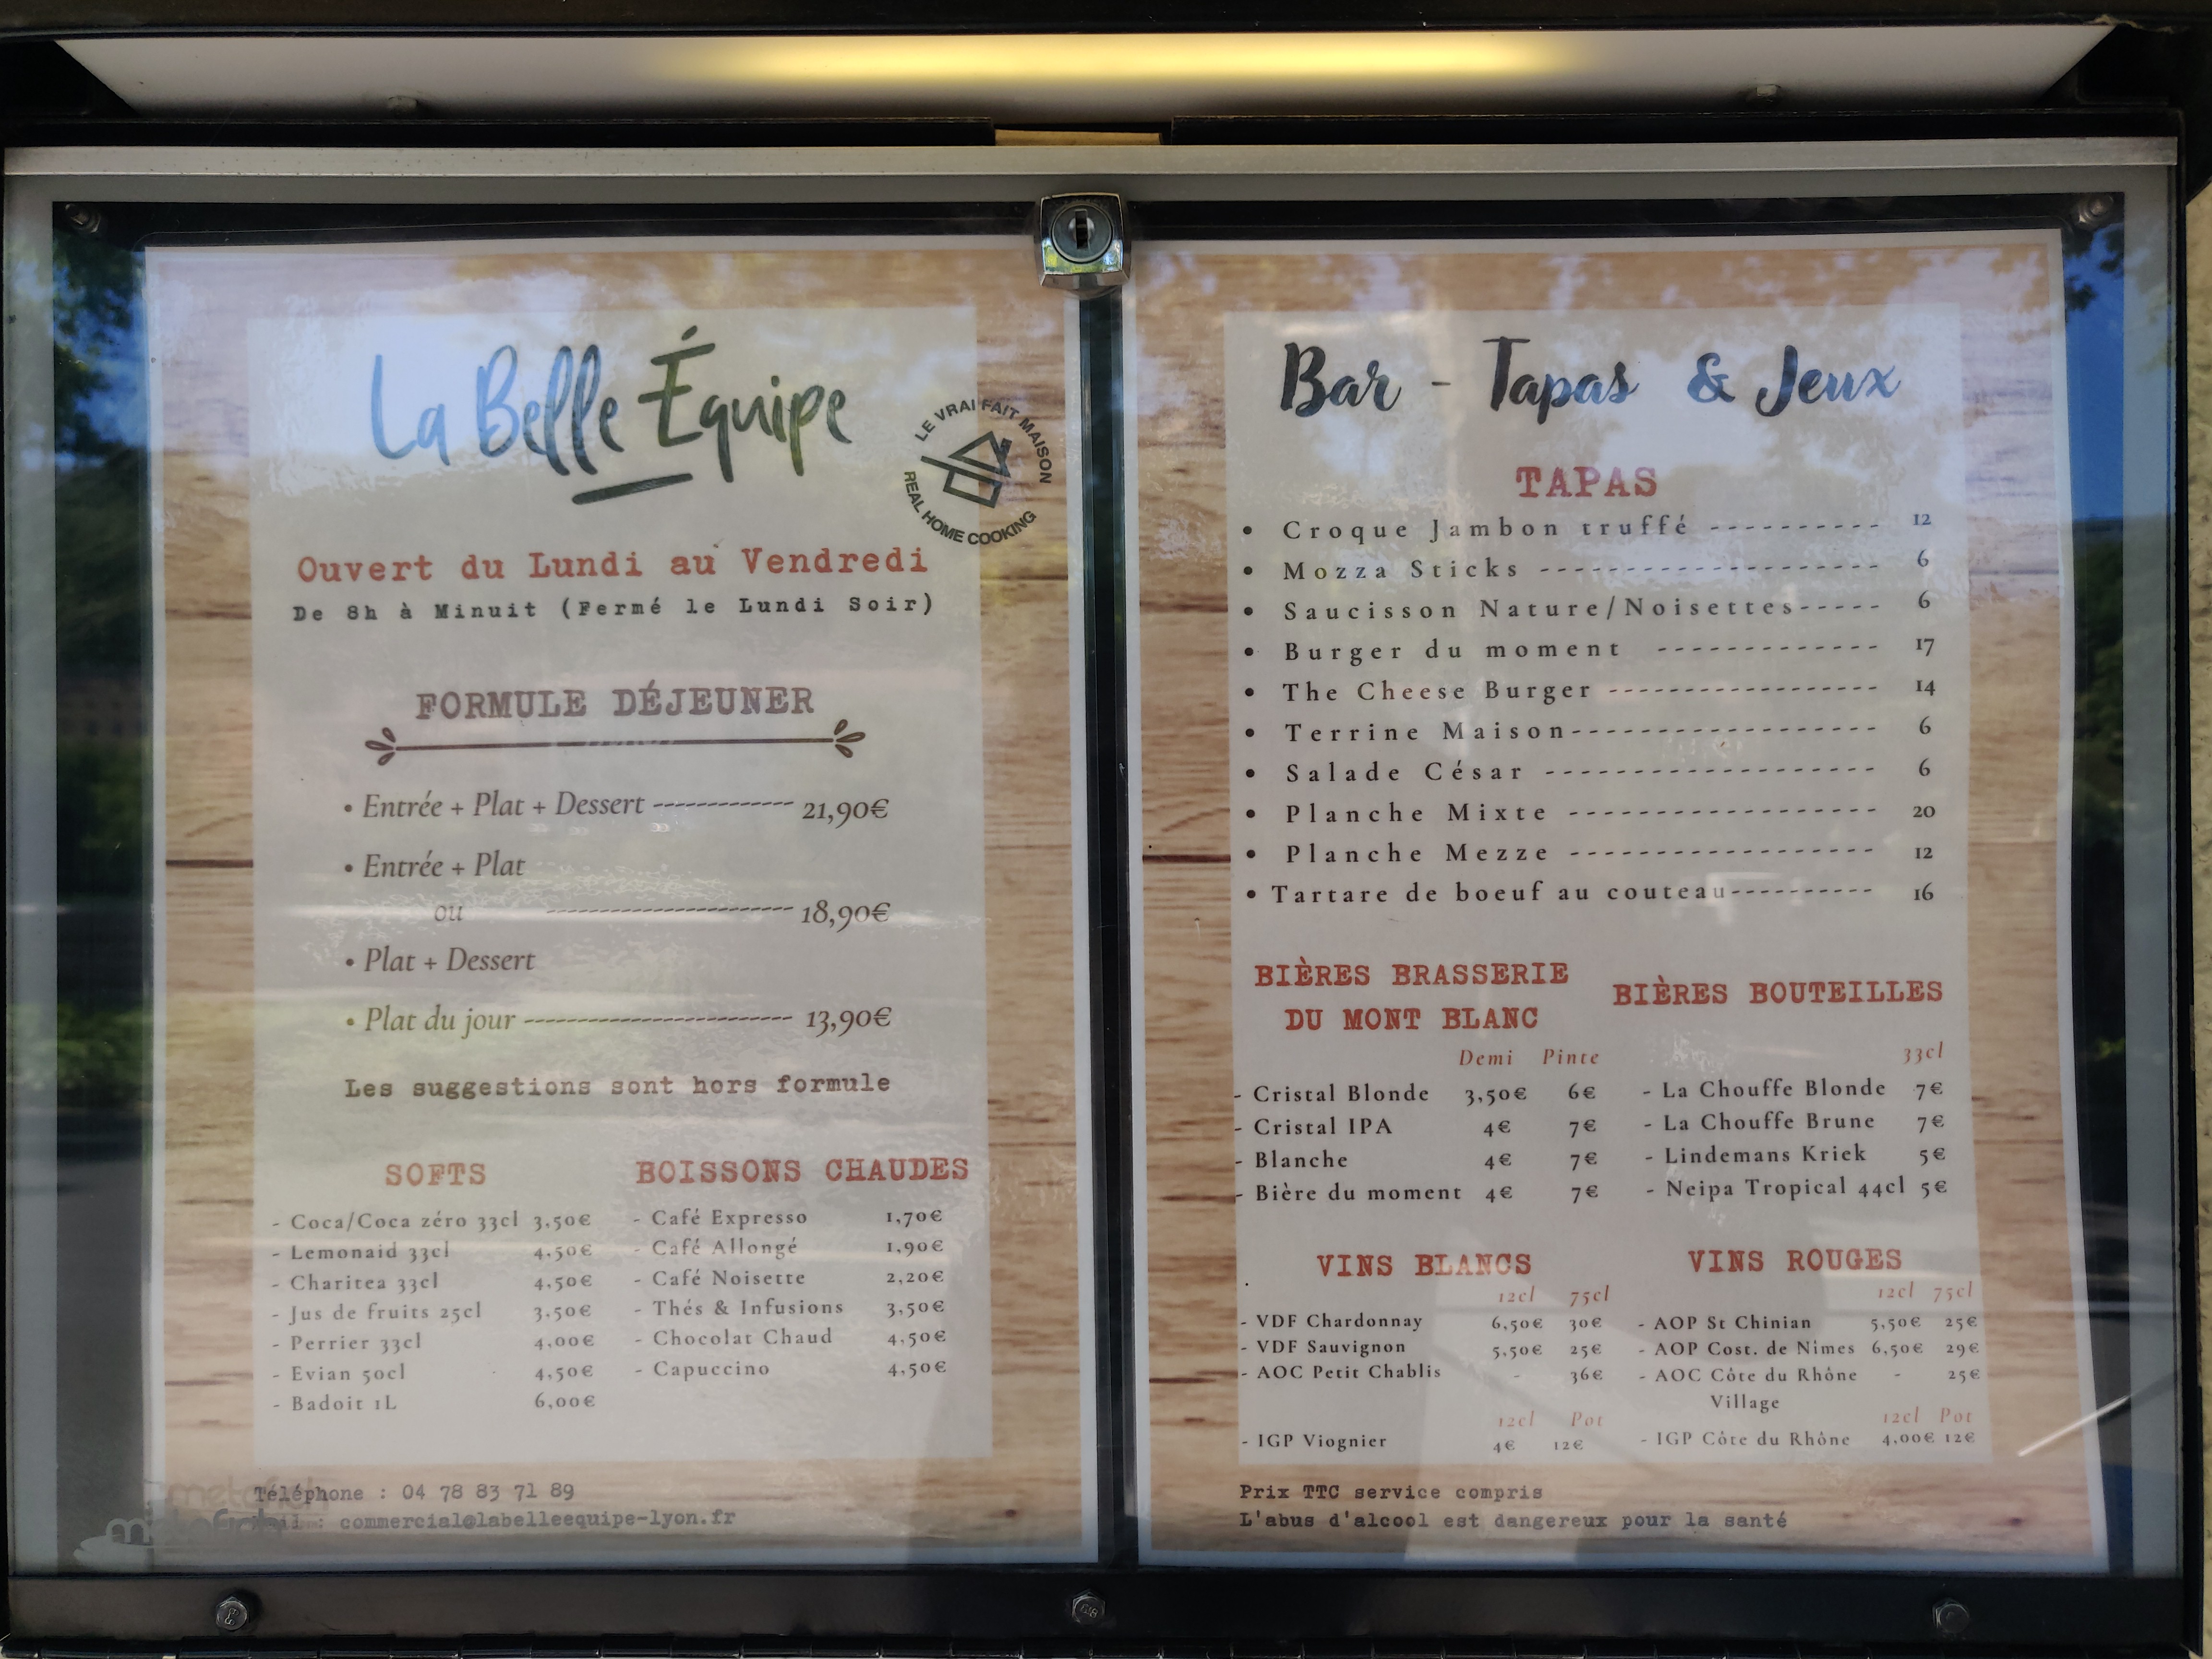 La Belle Équipe
LE VRAI FAIT MAISON
REAL HOME COOKING
Ouvert du Lundi au Vendredi
De 8h à Minuit (Fermé le Lundi Soir)
FORMULE DÉJEUNER
• Entrée + Plat + Dessert ------------- 21,90€
• Entrée + Plat
ou ----------------------- 18,90€
• Plat + Dessert
• Plat du jour ------------------------- 13,90€
Les suggestions sont hors formule
SOFTS
- Coca/Coca zéro 33cl 3,50€
- Lemonaid 33cl 4,50€
- Charitea 33cl 4,50€
- Jus de fruits 25cl 3,50€
- Perrier 33cl 4,00€
- Evian 50cl 4,50€
- Badoit 1L 6,00€
BOISSONS CHAUDES
- Café Expresso 1,70€
- Café Allongé 1,90€
- Café Noisette 2,20€
- Thés & Infusions 3,50€
- Chocolat Chaud 4,50€
- Capuccino 4,50€
Téléphone : 04 78 83 71 89
: commercial@labelleequipe-lyon.fr
Bar - Tapas & Jeux
TAPAS
• Croque Jambon truffé ---------- 12
• Mozza Sticks -------------------- 6
• Saucisson Nature/Noisettes----- 6
• Burger du moment ------------- 17
• The Cheese Burger ---------------- 14
• Terrine Maison------------------ 6
• Salade César ------------------- 6
• Planche Mixte ------------------ 20
• Planche Mezze ------------------ 12
• Tartare de boeuf au couteau---------- 16
BIÈRES BRASSERIE
DU MONT BLANC
Demi Pinte
- Cristal Blonde 3,50€ 6€
- Cristal IPA 4€ 7€
- Blanche 4€ 7€
- Bière du moment 4€ 7€
BIÈRES BOUTEILLES
33cl
- La Chouffe Blonde 7€
- La Chouffe Brune 7€
- Lindemans Kriek 5€
- Neipa Tropical 44cl 5€
VINS BLANCS
12cl 75cl
- VDF Chardonnay 6,50€ 30€
- VDF Sauvignon 5,50€ 25€
- AOC Petit Chablis - 36€
12cl Pot
- IGP Viognier 4€ 12€
VINS ROUGES
12cl 75cl
- AOP St Chinian 5,50€ 25€
- AOP Cost. de Nîmes 6,50€ 29€
- AOC Côte du Rhône - 25€
Village
12cl Pot
- IGP Côte du Rhône 4,00€ 12€
Prix TTC service compris
L'abus d'alcool est dangereux pour la santé